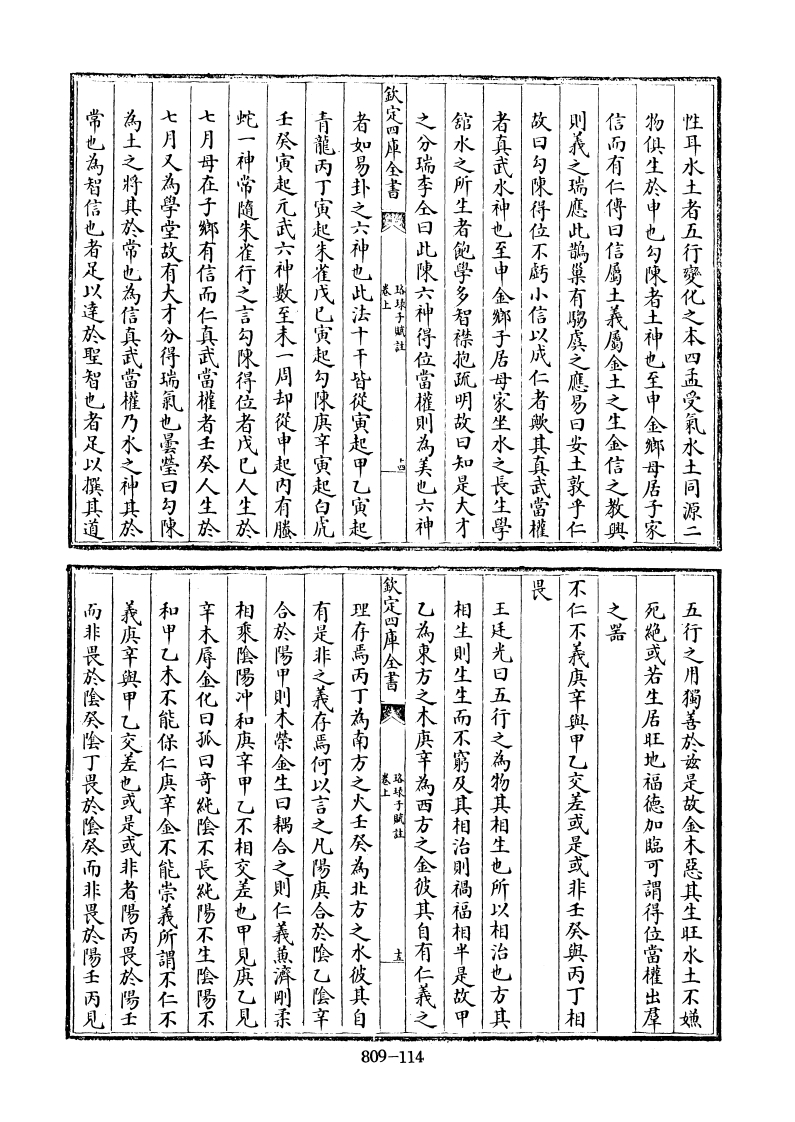 性耳水土者五行變化之本四孟受氣水土同源二
物俱生於申也勾陳者土神也至申金鄉母居子家
信而有仁傳曰信屬土義屬金土之生金信之教興
則義之瑞應此鵲巢有騶虞之應易曰安土敦乎仁
故曰勾陳得位不虧小信以成仁者歟其真武當權
者真武水神也至申金鄉子居母家坐水之長生學
舘水之所生者飽學多智襟抱疏明故曰知是大才
之分瑞李仝曰此陳六神得位當權則為美也六神
欽定四庫全書
珞琭子賦註
卷上
十四
者如易卦之六神也此法十干皆從寅起甲乙寅起
青龍丙丁寅起朱雀戊巳寅起勾陳庚辛寅起白虎
壬癸寅起元武六神數至未一周却從申起内有螣
蛇一神常隨朱雀行之言勾陳得位者戊巳人生於
七月母在子鄉有信而仁真武當權者壬癸人生於
七月又為學堂故有大才分得瑞氣也曇瑩曰勾陳
為土之將其於常也為信真武當權乃水之神其於
常也為智信也者足以達於聖智也者足以撰其道
五行之用獨善於兹是故金木惡其生旺水土不嫌
死絶或若生居旺地福德加臨可謂得位當權出羣
之器
不仁不義庚辛與甲乙交差或是或非壬癸與丙丁相
畏
王廷光曰五行之為物其相生也所以相治也方其
相生則生生而不窮及其相治則禍福相半是故甲
乙為東方之木庚辛為西方之金彼其自有仁義之
欽定四庫全書
珞琭子賦註
卷上
十五
理存焉丙丁為南方之火壬癸為北方之水彼其自
有是非之義存焉何以言之凡陽庚合於陰乙陰辛
合於陽甲則木榮金生曰耦合之則仁義兼濟剛柔
相乘陰陽冲和庚辛甲乙不相交差也甲見庚乙見
辛木辱金化曰孤曰竒純陰不長純陽不生陰陽不
和甲乙木不能保仁庚辛金不能崇義所謂不仁不
義庚辛與甲乙交差也或是或非者陽丙畏於陽壬
而非畏於陰癸陰丁畏於陰癸而非畏於陽壬丙見
809-114